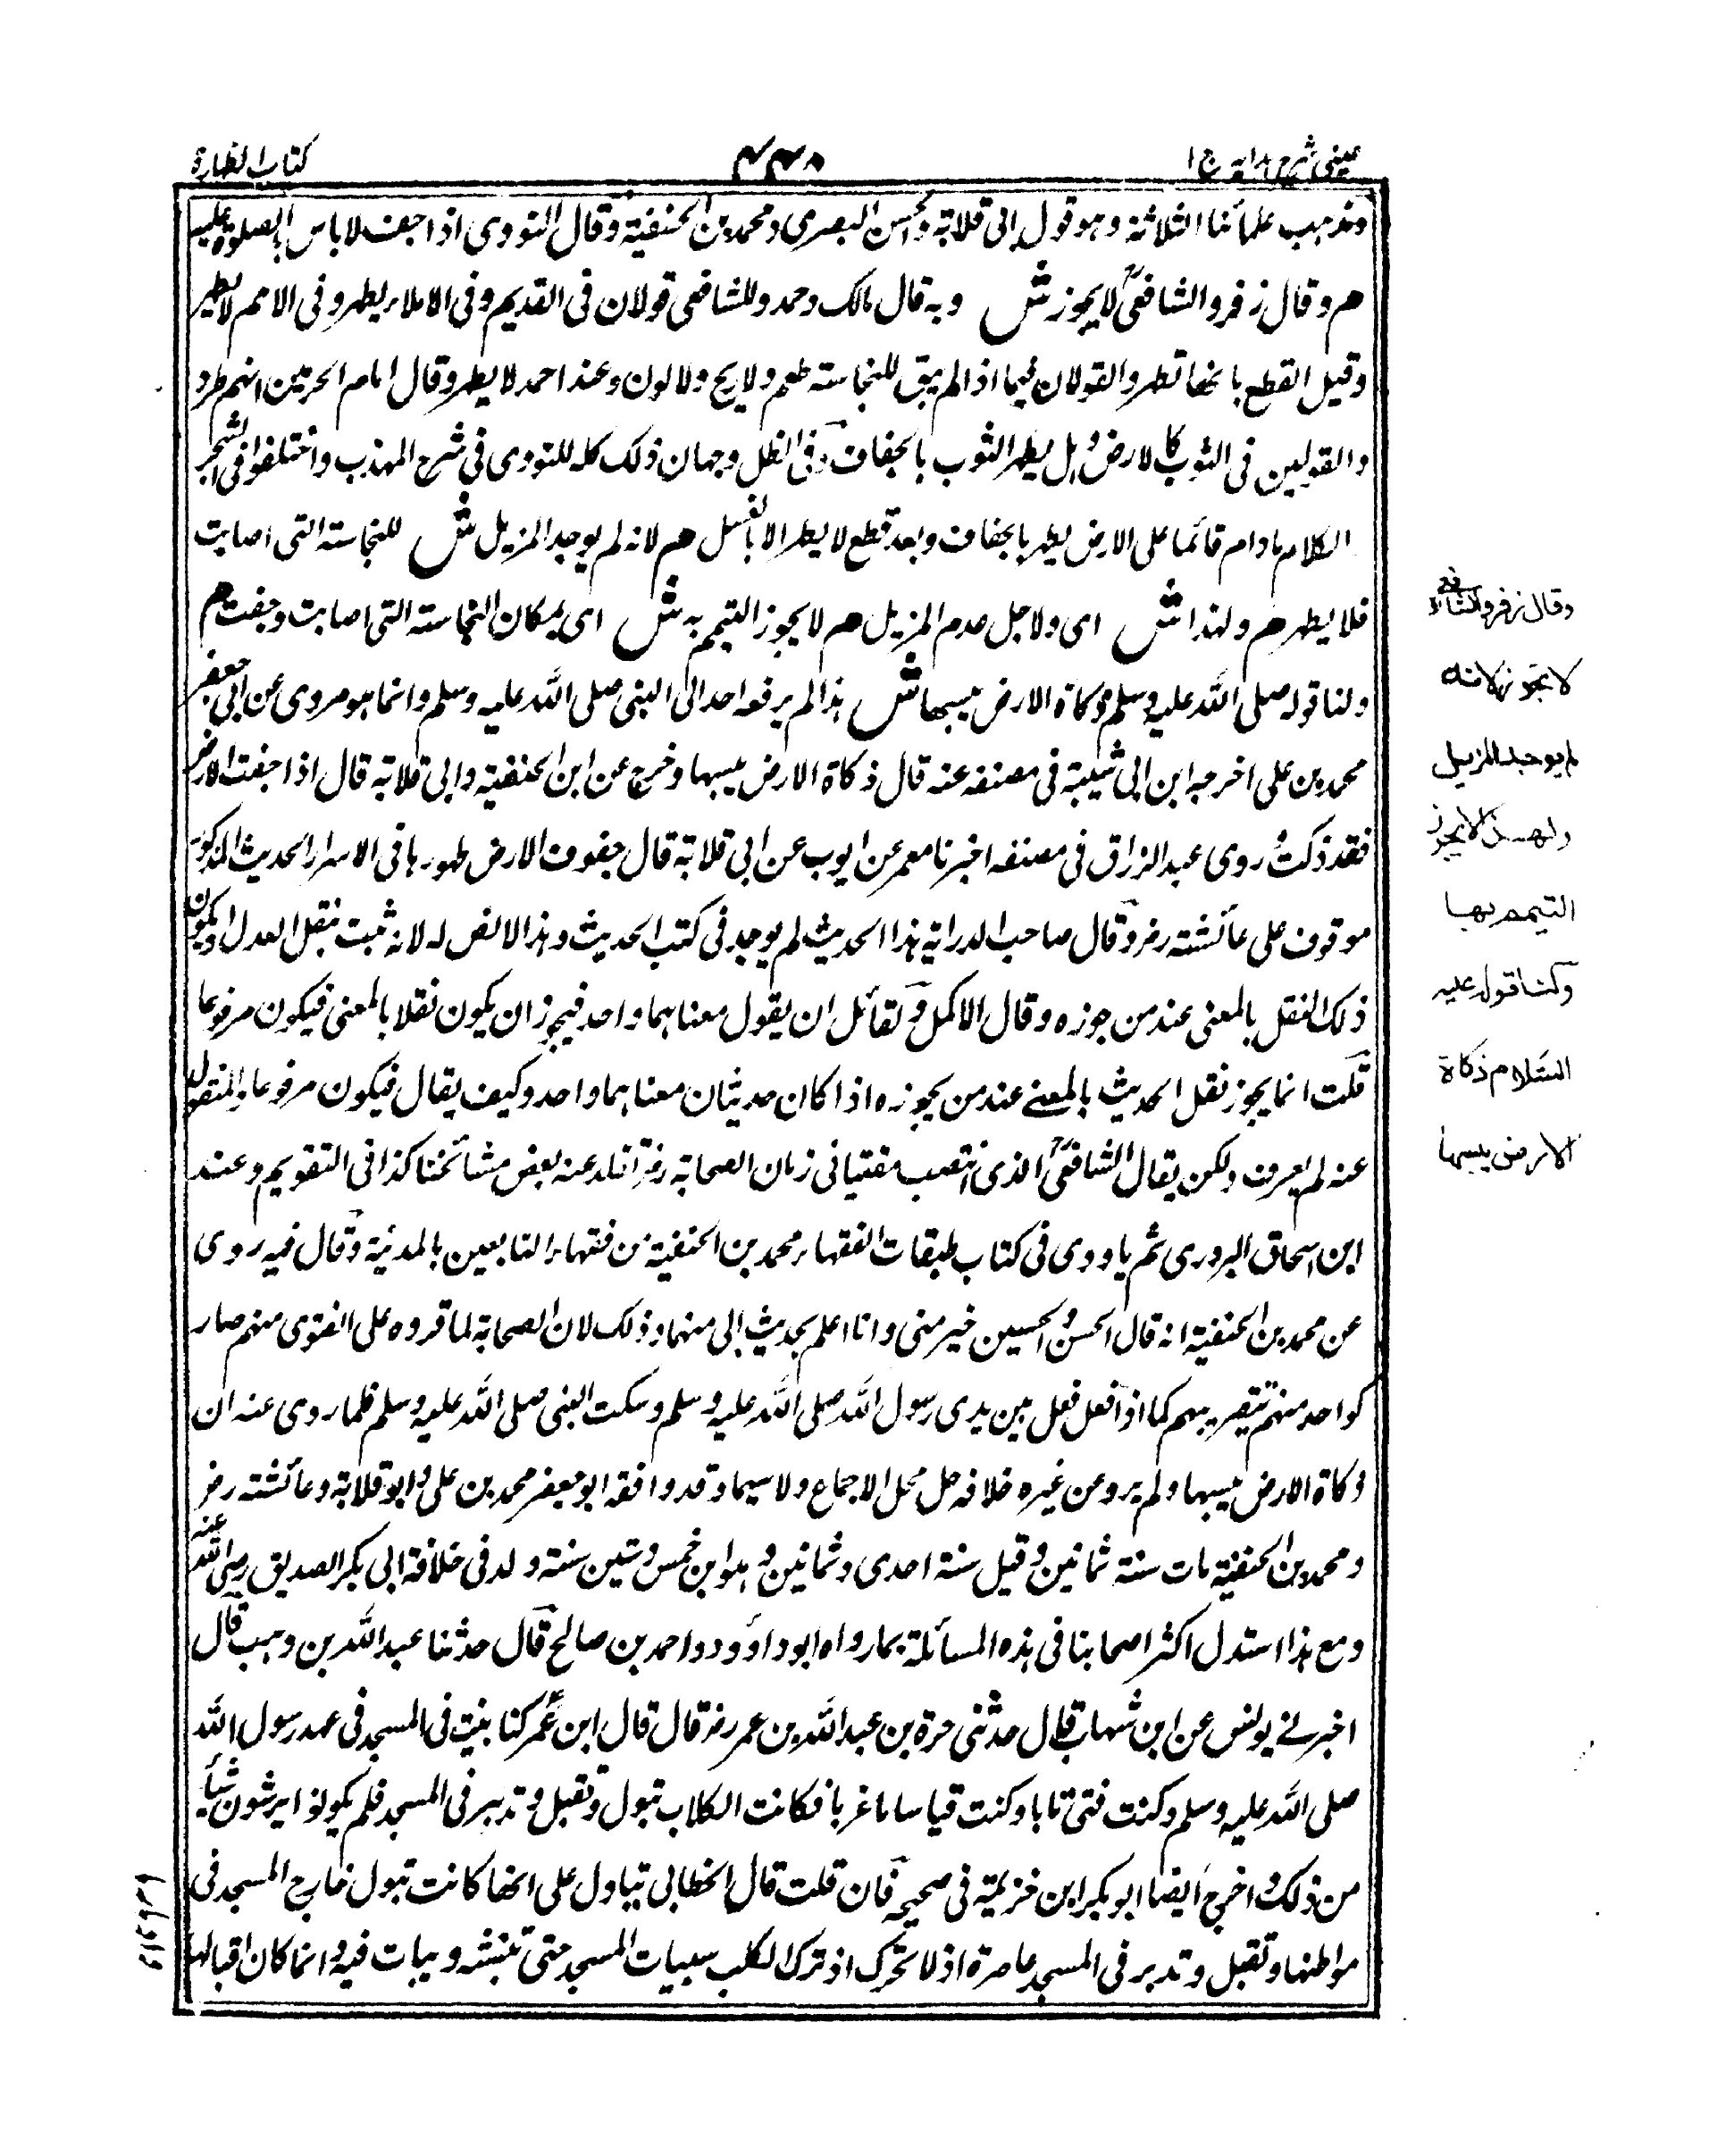 عینی شرح ہدایہ ج ۱
۴۴۰
کتاب الطہارة
ومذہب علمائنا الثلاثة وہو قول ابی قلابة والحسن البصری ومحمد بن الحنفیة وقال النووی اذا جف لا باس بالصلوة علیہ
م وقال زفر والشافعیؒ لا یجوز ش وبہ قال مالک واحمد وللشافعی قولان فی القدیم وفی الاملاء یطہر وفی الام لا یطہر
وقیل القطع بانھا تطہر والقولان فیما اذا لم یبق للنجاستہ طعم ولا ریح ولا لون وعند احمد لا یطہر وقال امام الحرمین انہم طرد
والقولین فی الثوب کالارض وہل یطہر الثوب بالجفاف وفی الظل وجہان ذلک کلہ للنووی فی شرح المہذب واختلفوا فی الشجر
الکلاء مادام قائما علی الارض یطہر بالجفاف وبعد قطع لا یطہر الا بالغسل م لانہ لم یوجد المزیل ش للنجاستہ التی اصابت
فلا یطہر م ولہذا ش ای ولاجل عدم المزیل م لا یجوز التیمم بہ ش ای بمکان النجاستہ التی اصابت وجفت م
ولنا قولہ صلی اللہ علیہ وسلم ذکاة الارض یبسہا ش ہذا لم یرفعہ احد الی النبی صلی اللہ علیہ وسلم وانما ہو مروی عن ابی جعفر
محمد بن علی اخرجہ ابن ابی شیبة فی مصنفہ عنہ قال ذکاة الارض یبسہا وخرج عن ابن الحنفیة وابی قلابة قال اذا جفت الارض
فقد ذکت روی عبد الرزاق فی مصنفہ اخبرنا معمر عن ایوب عن ابی قلابة قال جفوف الارض طہورہا فی الاسرار الحدیث المذکور
موقوف علی عائشتہ رض وقال صاحب الدرایة ہذا الحدیث لم یوجد فی کتب الحدیث وہذا لا نص لہ لانہ ثبت بنقل العدل او یکون
ذلک النقل بالمعنی عند من جوزہ وقال الاکمل ولقائل ان یقول معناہما واحد فیجوز ان یکون نقلا بالمعنی فیکون مرفوعا
قلت انما یجوز نقل الحدیث بالمعنے عند من یجوزہ اذا کان حدیثان معناہما واحد وکیف یقال فیکون مرفوعا والمنقول
عنہ لم یعرف ولکن یقال الشافعیؒ الذی انتصب مفتیا فی زمان الصحابة رض قلد عنہ بعض مشائخنا کذا فی التقویم وعند
ابن اسحاق فی کتاب طبقات الفقہاء محمد بن الحنفیة من فقہاء التابعین بالمدینة وقال فیہ روی
عن محمد بن الحنفیة انہ قال الحسن والحسین خیر منی وانا اعلم بحدیث ابی منہما وذلک لان الصحابة لما قروہ علی الفتوی منہم صار
کواحد منہم تقریرہم کما اذا فعل فعل بین یدی رسول اللہ صلی اللہ علیہ وسلم وسکت النبی صلی اللہ علیہ وسلم فلما روی عنہ ان
ذکاة الارض یبسہا ولم یرو عن غیرہ خلافہ حل محل الاجماع ولا سیما وقد وافقہ ابو جعفر محمد بن علی وابو قلابة وعائشتہ رض
ومحمد بن الحنفیة مات سنة ثمانین وقیل سنة احدی وثمانین وہو ابن خمس وستین سنة ولد فی خلافة ابی بکر الصدیق رضی اللہ عنہ
ومع ہذا استدل اکثر اصحابنا فی ہذہ المسائلة بما رواہ ابو داوود واحمد بن صالح قال حدثنا عبد اللہ بن وہب قال
اخبرنے یونس عن ابن شہاب قال حدثنی حمزة بن عبد اللہ بن عمر رض قال قال ابن عمر کنا بنیت فی المسجد فی عہد رسول اللہ
صلی اللہ علیہ وسلم وکنت فتی شابا عزبا فکانت الکلاب تبول وتقبل وتدبر فی المسجد فلم یکونوا یرشون شیأ
من ذلک واخرج ایضا ابو بکر ابن خزیمة فی صحیحہ فان قلت قال الخطابی یتاول علی انھا کانت تبول خارج المسجد فی
مواطنہا وتقبل وتدبر فی المسجد عابرة اذ لا یترک الکلب المسجد حتی وانما کان اقبالہا
وقال زفر والشافعی
لا یجوز لانہ
لم یوجد المزیل
ولہذا لا یجوز
التیمم بہا
ولنا قولہ علیہ
السلام ذکاة
الارض یبسہا